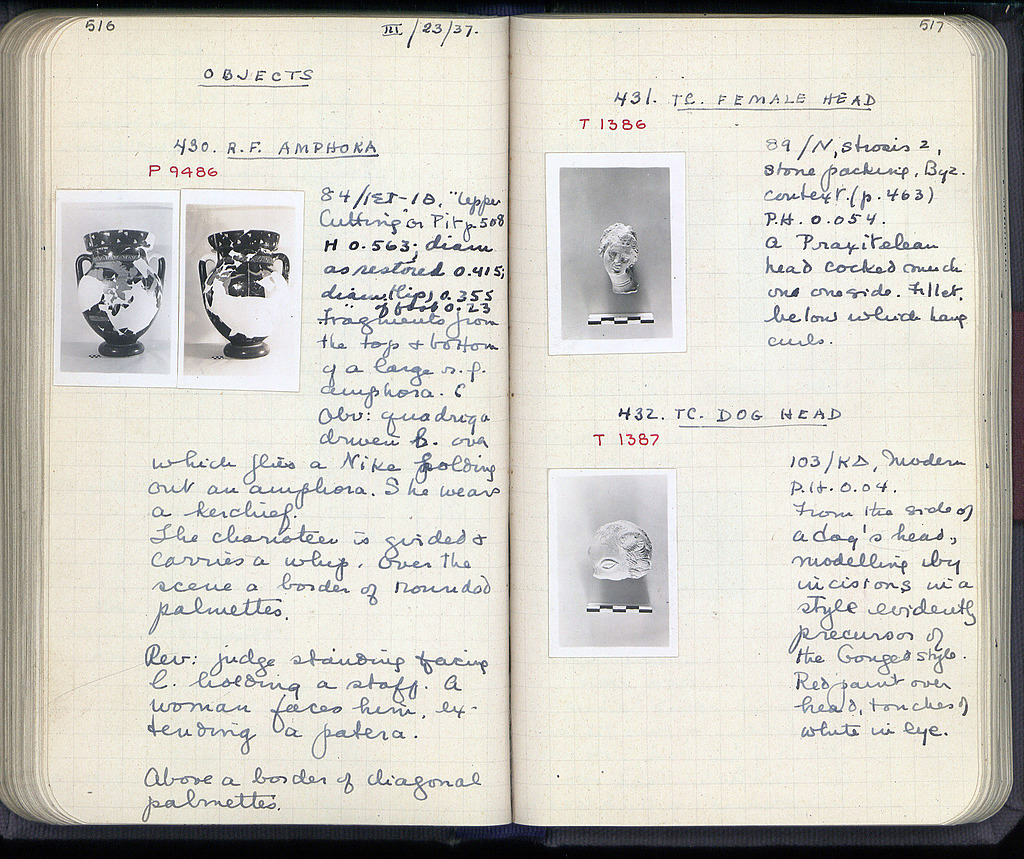 516
III/23/37.
OBJECTS
430. R.F. AMPHORA
P 9486
84/ΙΣΤ-18, "Upper
Cutting" or Pit p. 508
H 0.563; diam
as restored 0.415;
diam (lip) 0.355
of foot 0.23
Fragments from
the top & bottom
of a large r.f.
amphora.
Obv: quadriga
driven R. over
which flies a Nike holding
out an amphora. She wears
a kerchief.
The charioteer is girded &
carries a whip. Over the
scene a border of rounded
palmettes.
Rev: judge standing facing
l. holding a staff. A
woman faces him, ex-
tending a patera.
Above a border of diagonal
palmettes.
517
431. TC. FEMALE HEAD
T 1386
89/N, strosis 2,
stone packing, Byz.
context (p. 463)
P.H. 0.054.
A Praxitelean
head cocked much
on one side. Fillet,
below which hang
curls.
432. TC. DOG HEAD
T 1387
103/ΚΔ, Modern
P.H. 0.04.
From the side of
a dog's head,
modelling by
incisions in a
style evidently
precursor of
the Gouged style.
Red paint over
head, touches of
white in eye.